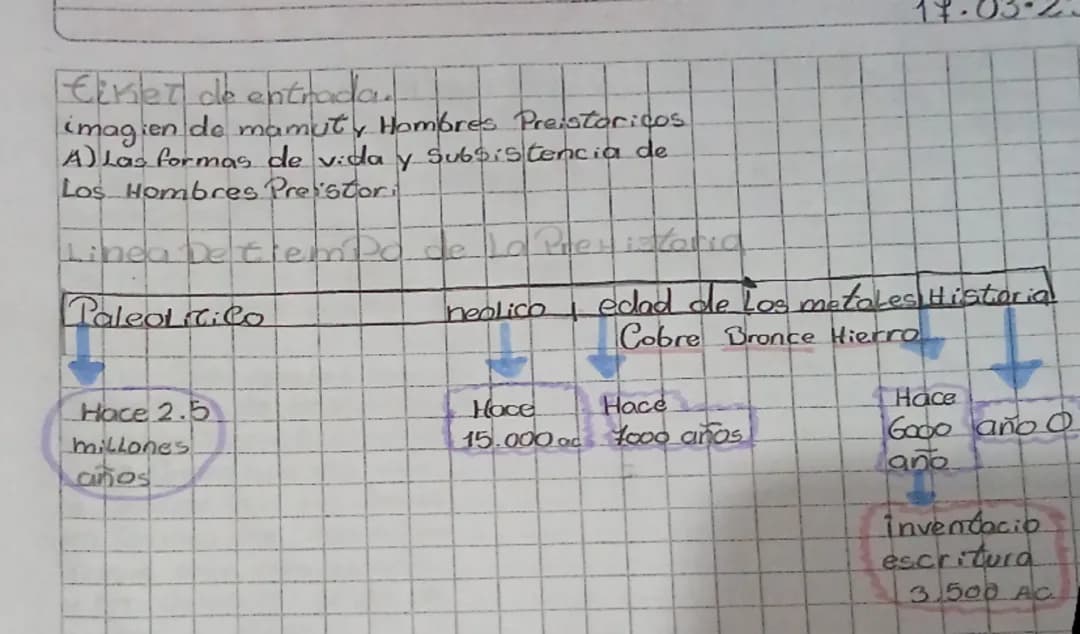 17.03.2
ticket de entrada.
imagien de mamut y Hombres Preistoricos
A) Las formas de vida y subsistencia de
Los Hombres Preistori
Linea De tiempo de la Prehistoria
Paleolitico neolico edad de Los metales Historia
Cobre Bronce Hierro
Hace 2.5 millones años
Hace 15.000 ac
Hace 7000 años
Hace 6000 año
año 0
inventacio
escritura
3,500 AC